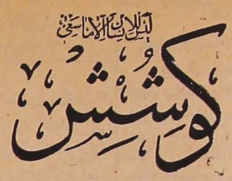 لیس للانسان الا ما سعی
کوشش